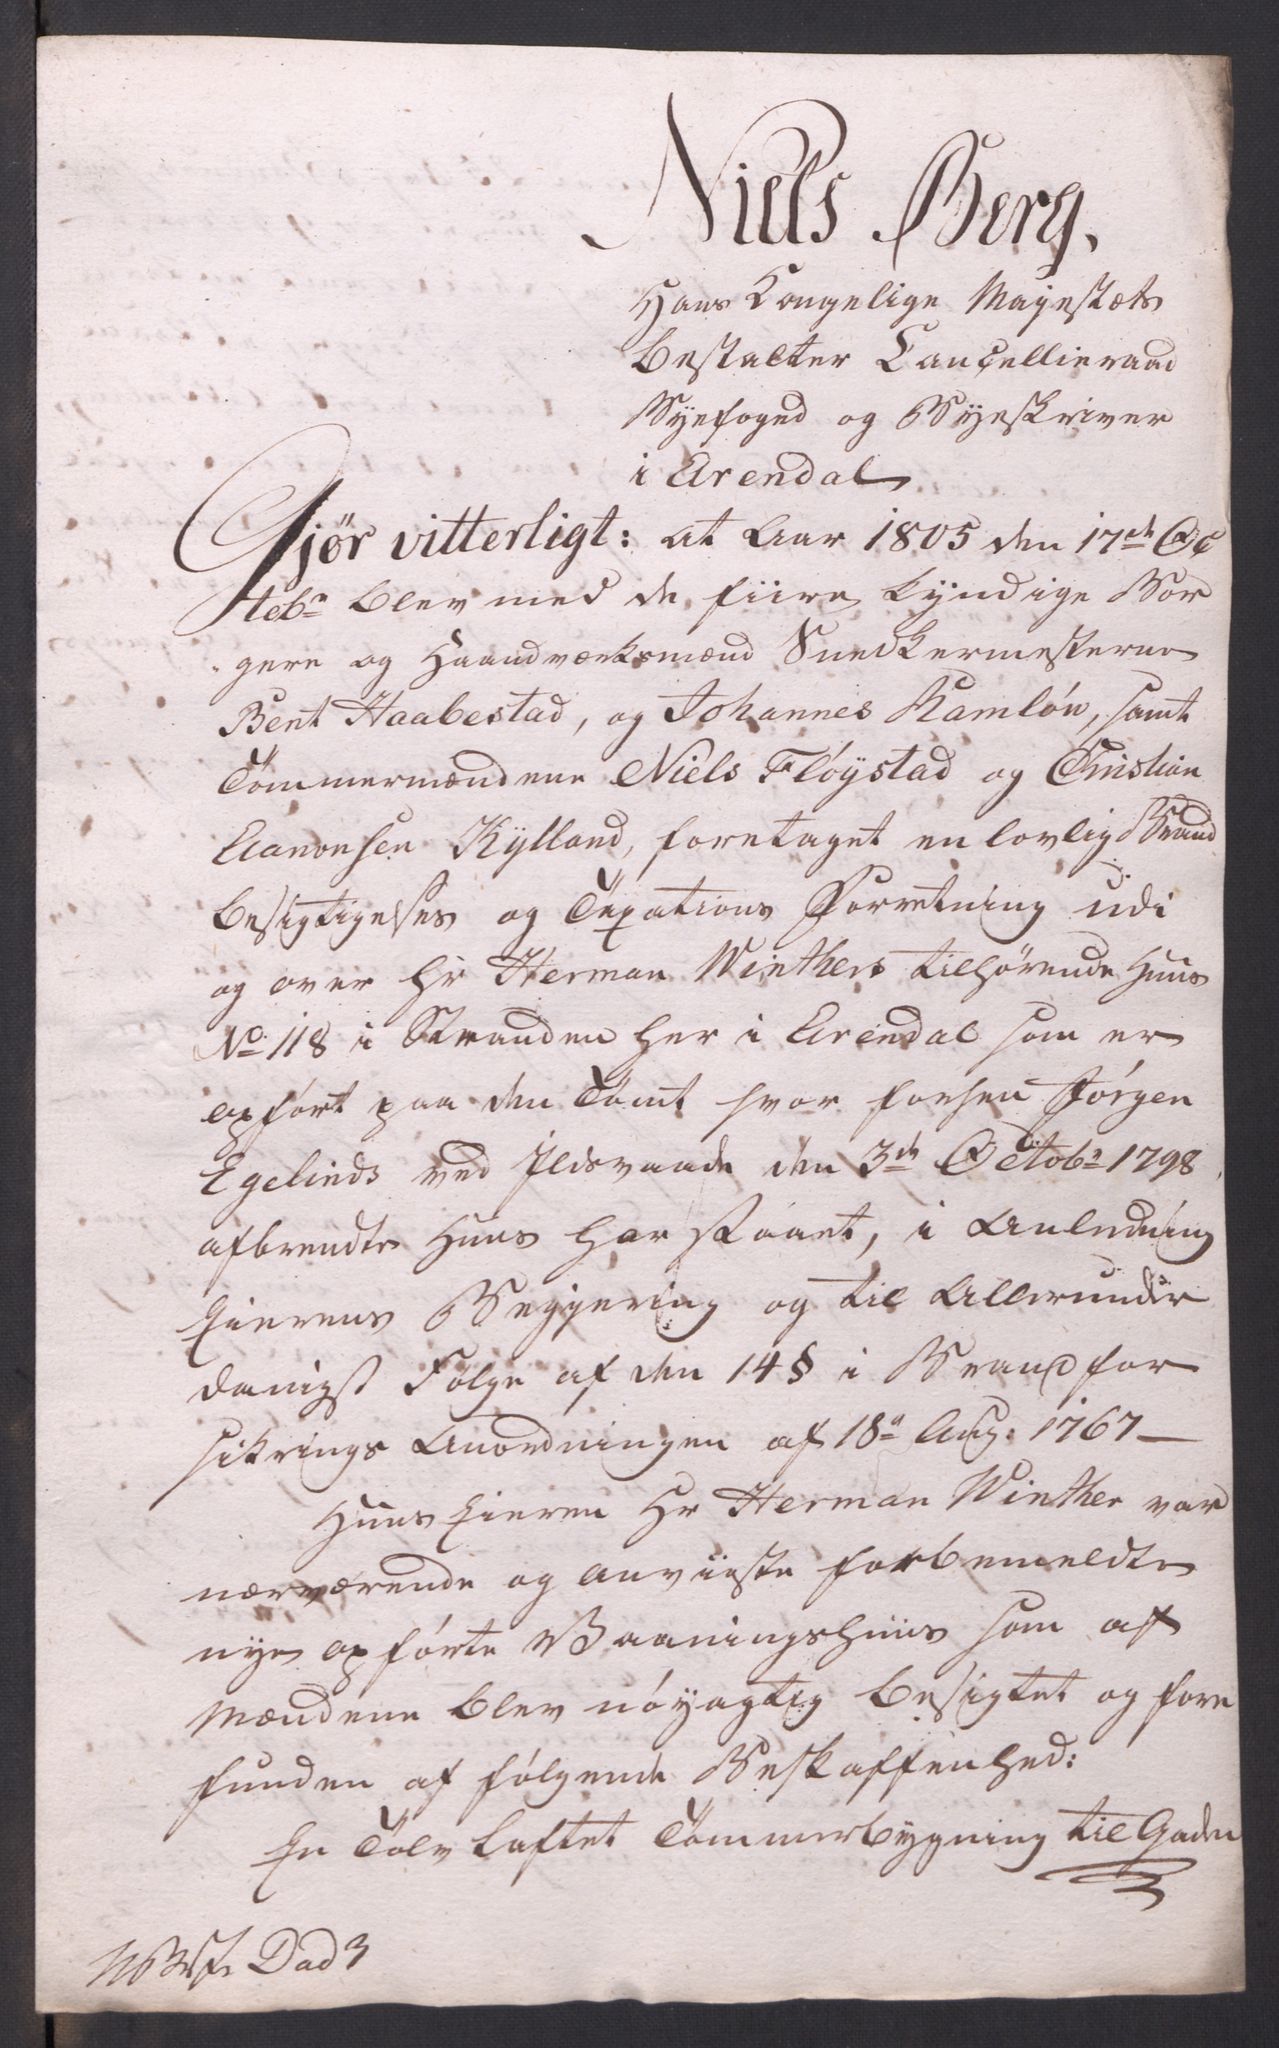 Niels Berg,
Hans Kongelige Mayestæts
Bestalter Cancellieraad
Byefoged og Byeskriver
i Arendal
Gjør vitterligt: at Aar 1805 den 17de Oc
tobr blev med de fiire kyndige Bor
gere og Haandværksmænd Snedkermesterne
Bent Haabestad, og Johannes Ramlón, samt
Tömmermændene Niels Flóÿstad og Christian
Aanonsen Kÿlland, foretaget en lovlig Brand
besigtigelses og Taxations Forretning udi
og over Hr Herman Winthers tilhørende Huus
No 118 i Stranden her i Arendal som er
opfórt paa den Tomt hvor forhen Jórgen
Egelinds ved Ildsvaade den 3de Octobr 1798
afbrendte Huus har staaet, i Anledning
Eierens Begjering og til Allerunder
danigst Fólge af den 14 § i Brandfor
sikrings Anordningen af 18de Aug: 1767 —
Huus Eieren Hr Herman Winther var
nærværende og anviiste forbemeldte
nye opfórte Vaaningshuus som af
Mændene blev nóÿagtig besigtet og fore
funden af fólgende Beskaffenhed:
En Tolv laftet Tömmerbÿgning til Gaden
Dad 3